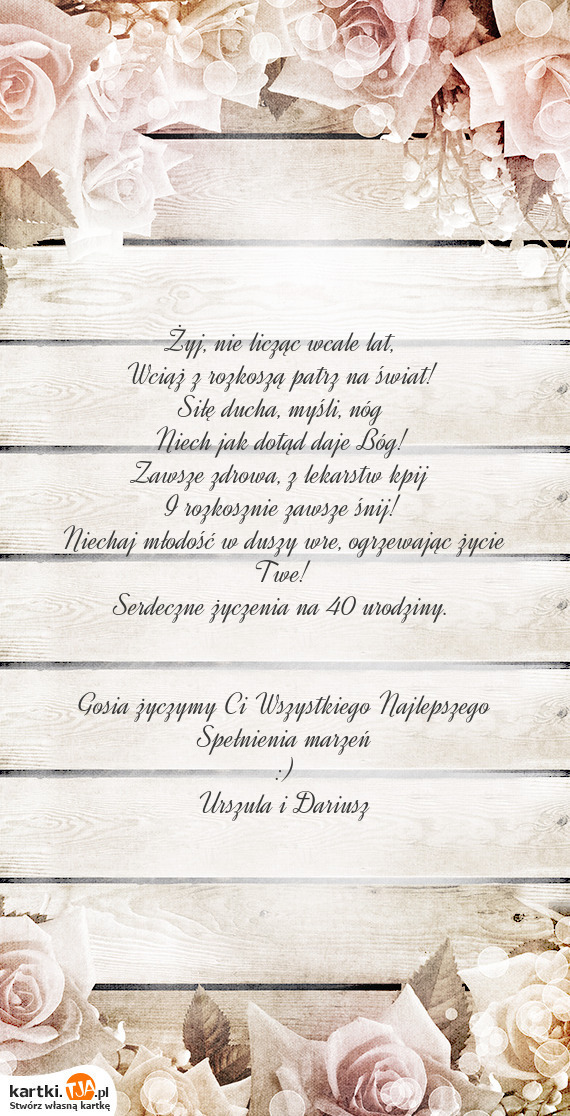 Żyj, nie licząc wcale lat,
Wciąż z rozkoszą patrz na świat!
Siłę ducha, myśli, nóg
Niech jak dotąd daje Bóg!
Zawsze zdrowa, z lekarstw kpij
I rozkosznie zawsze śnij!
Niechaj młodość w duszy wre, ogrzewając życie
Twe!
Serdeczne życzenia na 40 urodziny.
Gosia życzymy Ci Wszystkiego Najlepszego
Spełnienia marzeń
:)
Urszula i Dariusz
kartki.TJA.pl
Stwórz własną kartkę